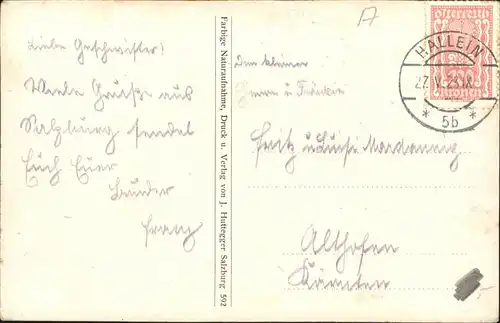 Liebe Geschwister!
Viele Grüße aus
Salzburg sendet
Euch Euer
Bruder
Franz
Farbige Naturaufnahme, Druck u. Verlag von J. Huttegger Salzburg 592
Österreich
HALLEIN
27.IV.23.IX
* 5b *
Herrn u. Fräulein
Fritz u Luise
Althofen
Kärnten